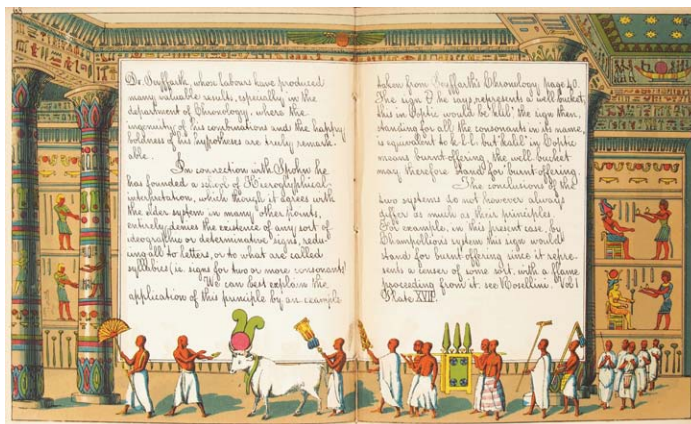 Dr. Seyffarth, whose labours have produced
many valuable results, especially in the
department of Chronology, where the
ingenuity of his combinations and the happy
boldness of his hypotheses are truly remark-
able.
In connection with Spohn he
has founded a school of Hieroglyphical
interpretation, which though it agrees with
the older system in many other points,
entirely denies the existence of any sort of
ideographic or determinative signs, redu-
cing all to letters, or to what are called
syllables (ie. signs for two or more consonants)
We can best explain the
application of this principle by an example
taken from Seyffarth's Chronology page 20.
The sign he says represents a well bucket,
this in Coptic would be the sign then,
standing for all the consonants in its name,
is equivalent to k.l.l. but in Coptic
means burnt offering, the well-bucket
may therefore stand for burnt offering.
The conclusions of the
two systems do not however always
differ as much as their principles.
For example, in this present case, by
Champollion's system this sign would
stand for burnt offering since it repre-
sents a censer of some sort, with a flame
proceeding from it, see Rosellini Vol 1
Plate XVII